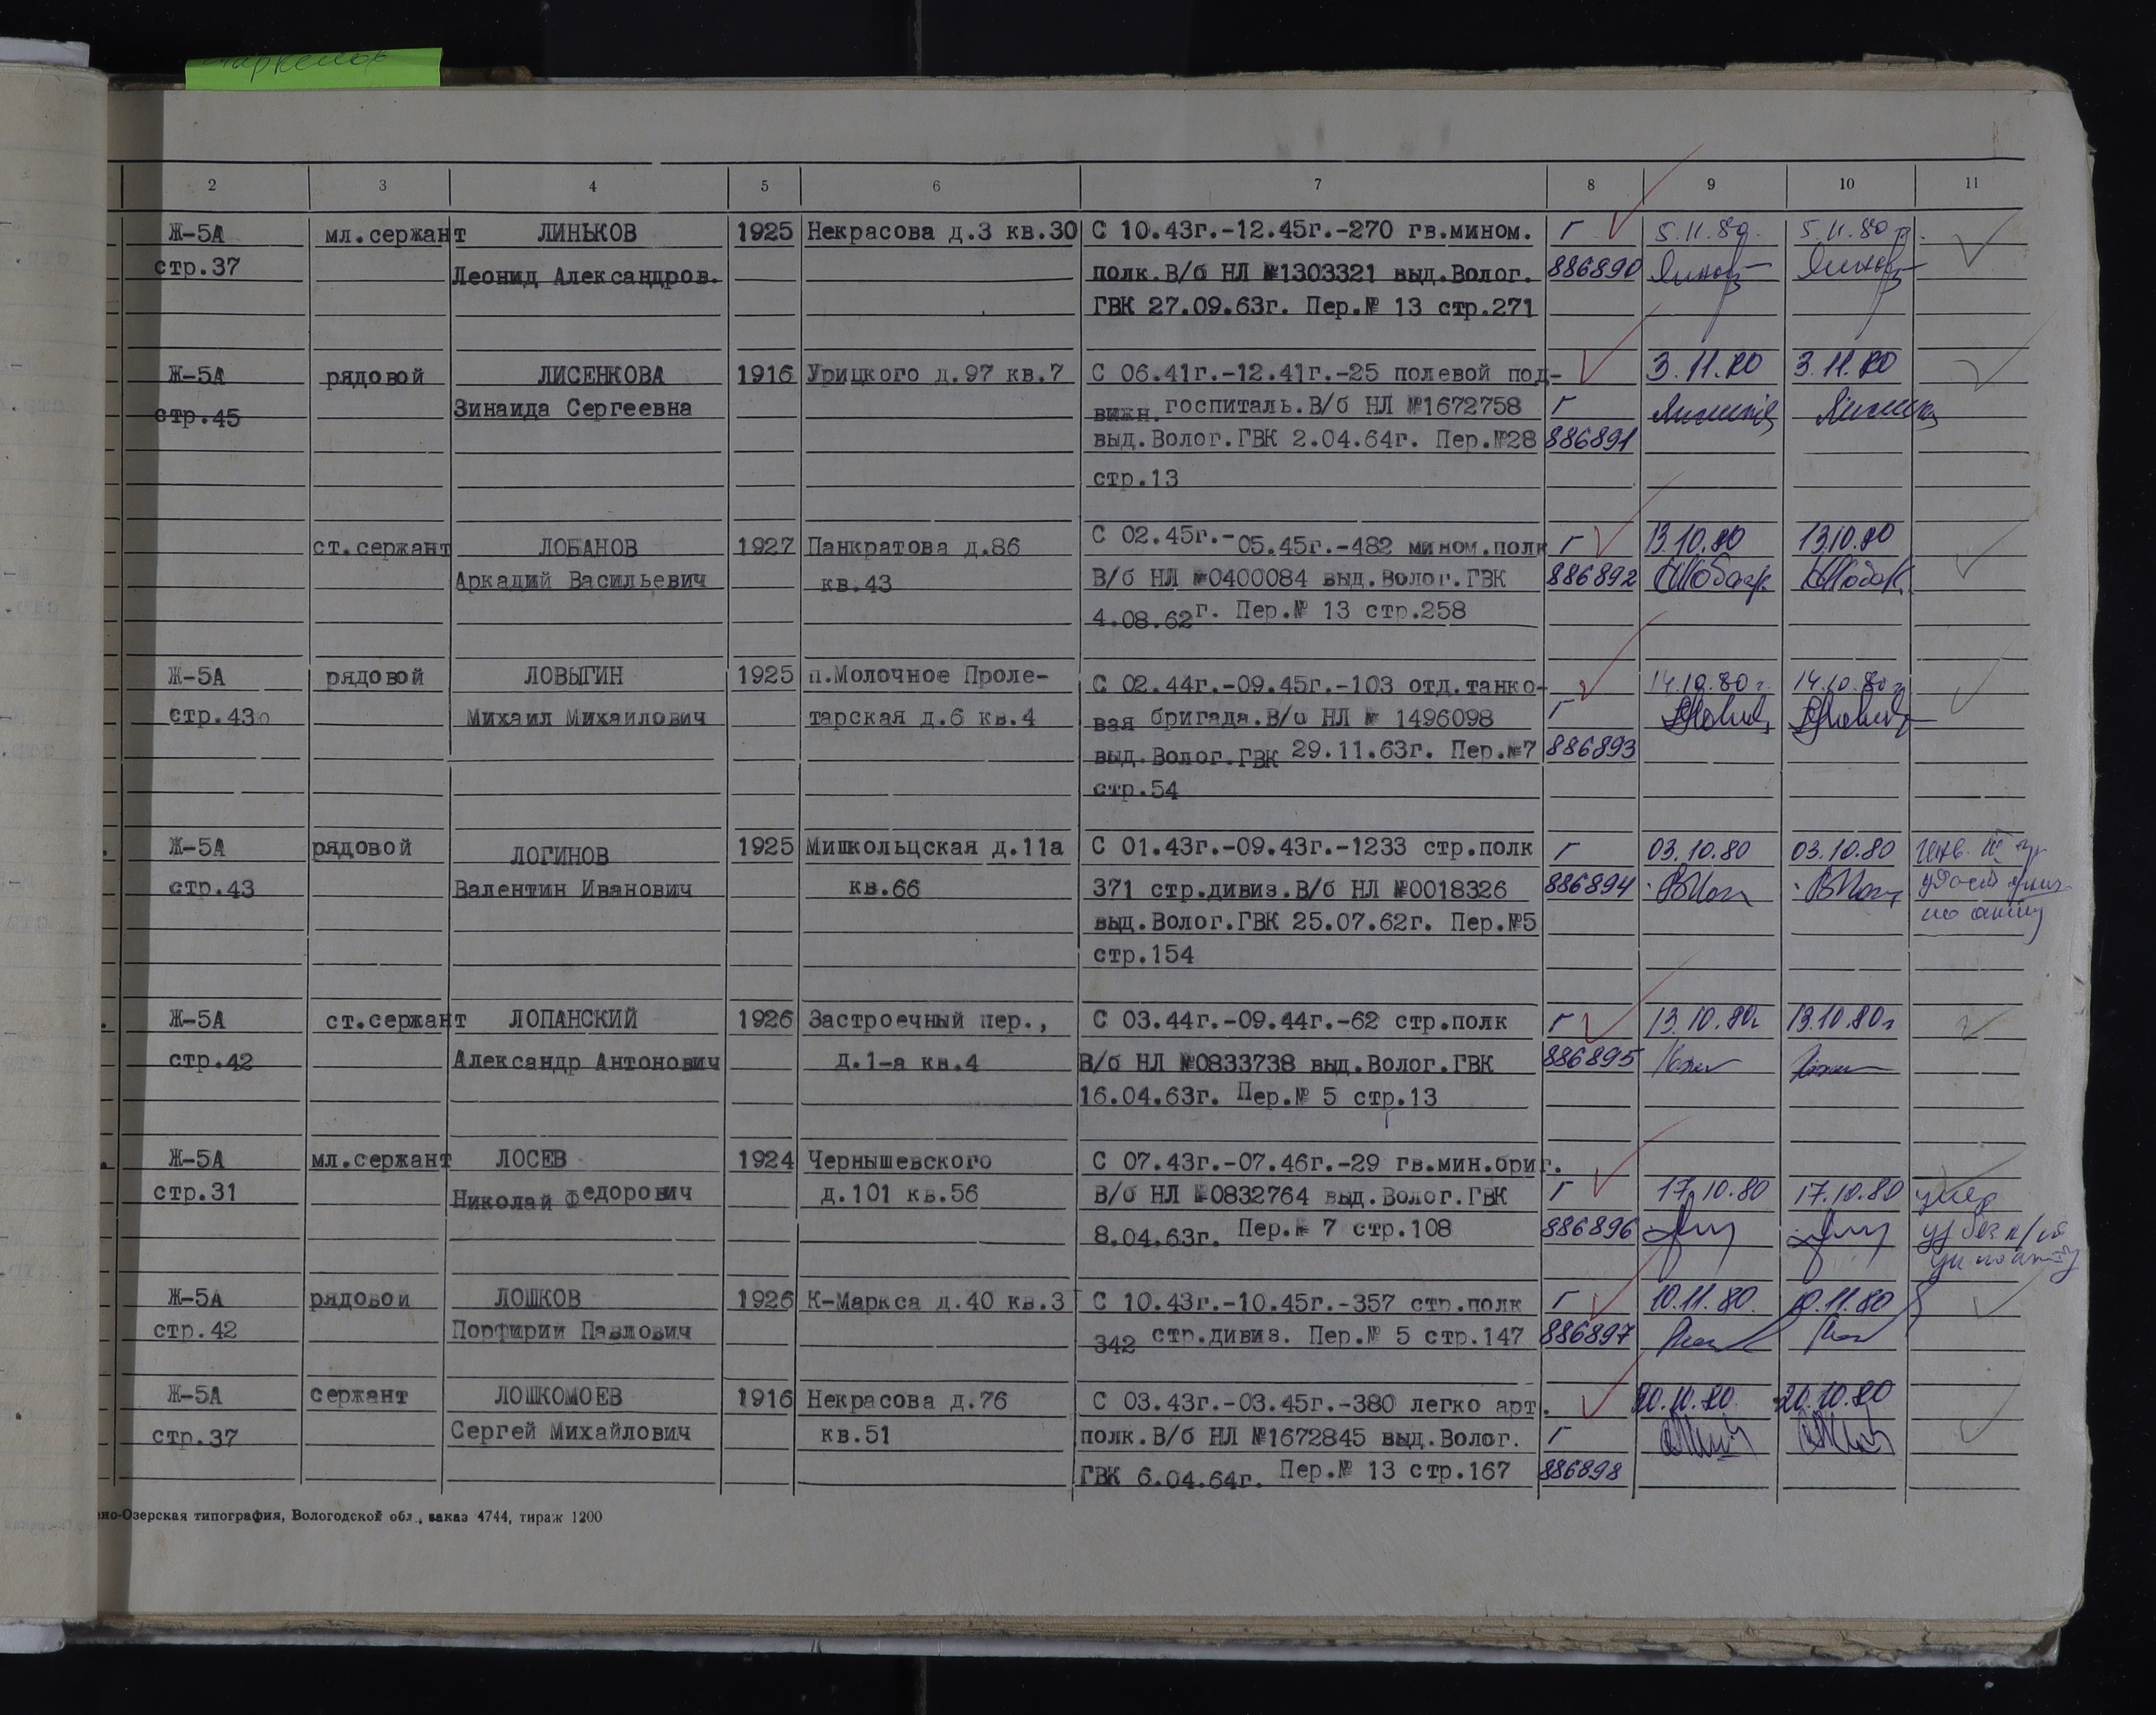 2 3 4 5 6 7 8 9 10 11
Ж-5А мл.сержант ЛИНЬКОВ 1925 Некрасова д.3 кв.30 С 10.43г.-12.45г.-270 гв.мином. Г 5.11.80. 5.11.80г.
стр.37 Леонид Александров. полк.В/б НЛ №1303321 выд.Волог. 886890
ГВК 27.09.63г. Пер.№ 13 стр.271
Ж-5А рядовой ЛИСЕНКОВА 1916 Урицкого д.97 кв.7 С 06.41г.-12.41г.-25 полевой под- 3.11.80 3.11.80
стр.45 Зинаида Сергеевна вижн.госпиталь.В/б НЛ №1672758 Г
выд.Волог.ГВК 2.04.64г. Пер.№28 886891
стр.13
ст.сержант ЛОБАНОВ 1927 Панкратова д.86 С 02.45г.-05.45г.-482 мином.полк Г 13.10.80 13.10.80
Аркадий Васильевич кв.43 В/б НЛ №0400084 выд.Волог.ГВК 886892
4.08.62г. Пер.№ 13 стр.258
Ж-5А рядовой ЛОВЫГИН 1925 п.Молочное Проле- С 02.44г.-09.45г.-103 отд.танко- 14.10.80г. 14.10.80г
стр.43 Михаил Михаилович тарская д.6 кв.4 вая бригада.В/б НЛ № 1496098 Г
выд.Волог.ГВК 29.11.63г. Пер.№7 886893
стр.54
Ж-5А рядовой ЛОГИНОВ 1925 Мишкольцская д.11а С 01.43г.-09.43г.-1233 стр.полк Г 03.10.80 03.10.80
стр.43 Валентин Иванович кв.66 371 стр.дивиз.В/б НЛ №0018326 886894
выд.Волог.ГВК 25.07.62г. Пер.№5 по акту
стр.154
Ж-5А ст.сержант ЛОПАНСКИЙ 1926 Застроечный пер., С 03.44г.-09.44г.-62 стр.полк Г 13.10.80г 13.10.80г
стр.42 Александр Антонович д.1-а кв.4 В/б НЛ №0833738 выд.Волог.ГВК 886895
16.04.63г. Пер.№ 5 стр.13
Ж-5А мл.сержант ЛОСЕВ 1924 Чернышевского С 07.43г.-07.46г.-29 гв.мин.бриг.
стр.31 Николай Федорович д.101 кв.56 В/б НЛ №0832764 выд.Волог.ГВК Г 17.10.80 17.10.80
8.04.63г. Пер.№ 7 стр.108 886896
Ж-5А рядовой ЛОШКОВ 1926 К-Маркса д.40 кв.3 С 10.43г.-10.45г.-357 стр.полк Г 10.11.80. 10.11.80
стр.42 Порфирий Павлович 342 стр.дивиз. Пер.№ 5 стр.147 886897
Ж-5А сержант ЛОШКОМОЕВ 1916 Некрасова д.76 С 03.43г.-03.45г.-380 легко арт. 20.10.80. 20.10.80
стр.37 Сергей Михайлович кв.51 полк.В/б НЛ №1672845 выд.Волог. Г
ГВК 6.04.64г. Пер.№ 13 стр.167 886898
но-Озерская типография, Вологодской обл., заказ 4744, тираж 1200